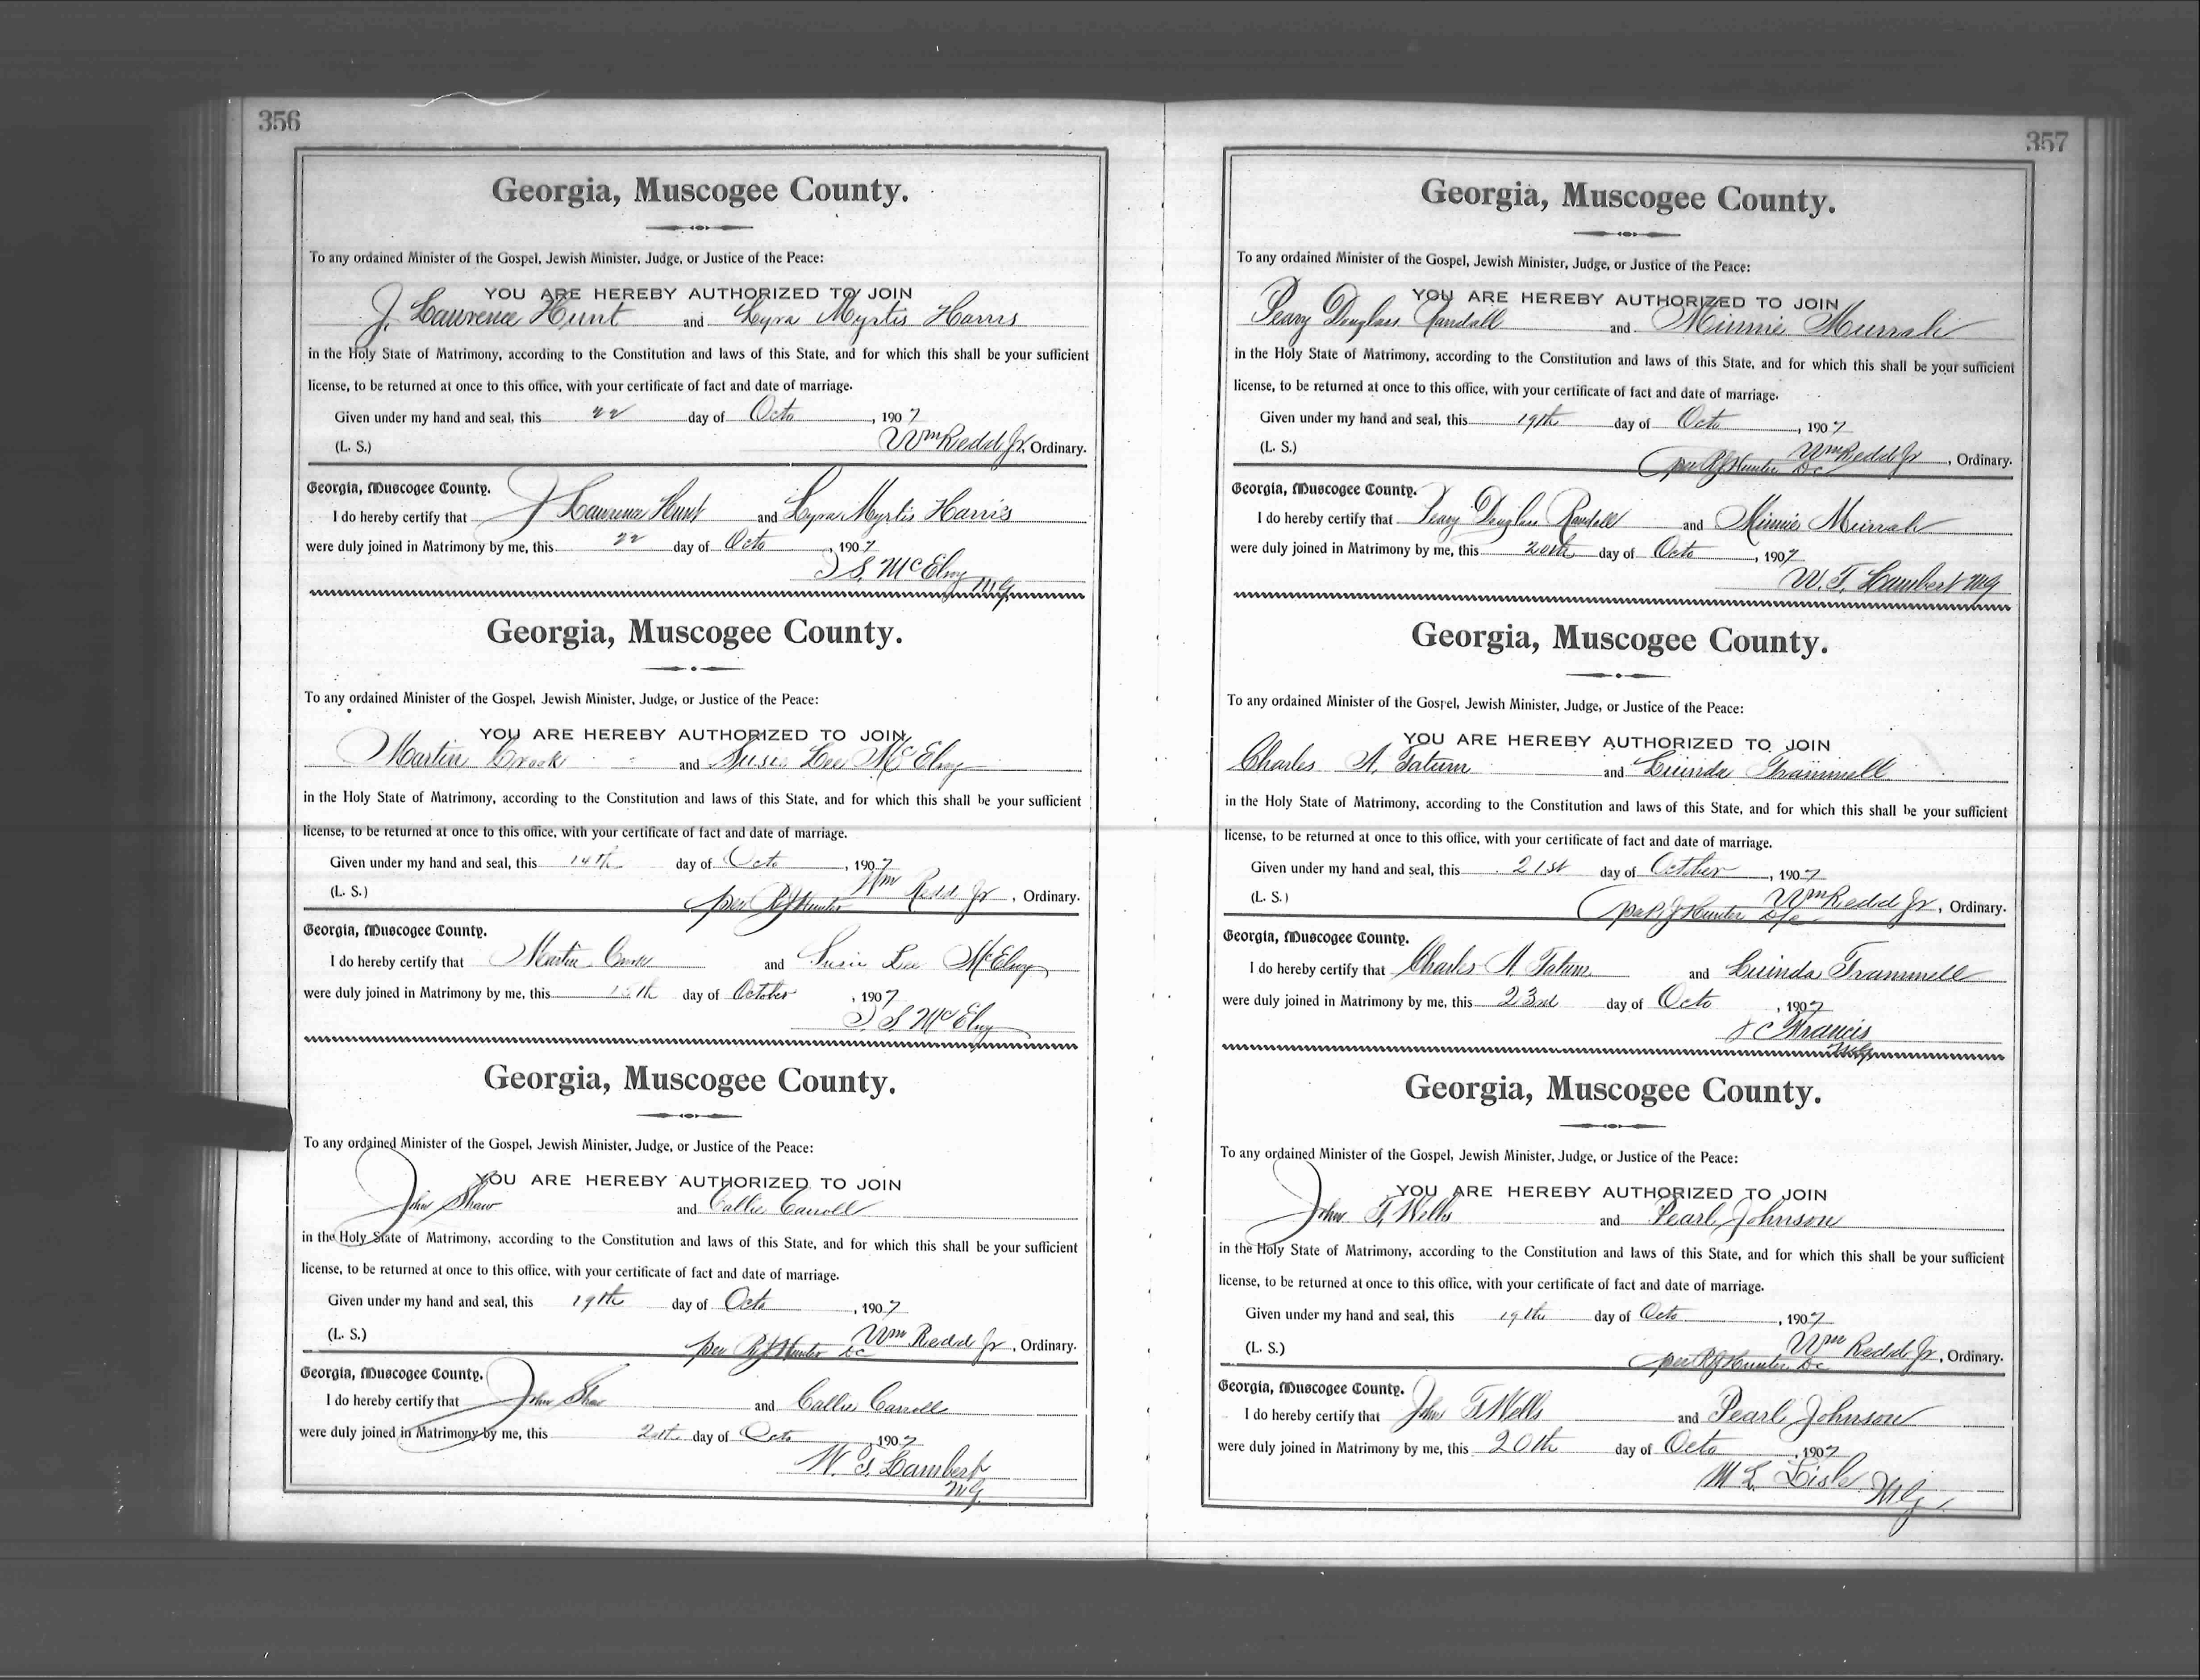 356
Georgia, Muscogee County.
To any ordained Minister of the Gospel, Jewish Minister, Judge, or Justice of the Peace:
YOU ARE HEREBY AUTHORIZED TO JOIN
J. Lawrence Hunt and Lyra Myrtis Harris
in the Holy State of Matrimony, according to the Constitution and laws of this State, and for which this shall be your sufficient
license, to be returned at once to this office, with your certificate of fact and date of marriage.
Given under my hand and seal, this 22 day of Octo, 1907
(L. S.) Wm Redd Jr, Ordinary.
Georgia, Muscogee County.
I do hereby certify that J Lawrence Hunt and Lyra Myrtis Harris
were duly joined in Matrimony by me, this 22 day of Octo, 1907
S. McElroy
MG
Georgia, Muscogee County.
To any ordained Minister of the Gospel, Jewish Minister, Judge, or Justice of the Peace:
YOU ARE HEREBY AUTHORIZED TO JOIN
Martin and Susie Lee McElroy
in the Holy State of Matrimony, according to the Constitution and laws of this State, and for which this shall be your sufficient
license, to be returned at once to this office, with your certificate of fact and date of marriage.
Given under my hand and seal, this 14th day of Octo, 1907
(L. S.) per RJ Hunter Wm Redd Jr, Ordinary.
Georgia, Muscogee County.
I do hereby certify that Martin and Susie Lee McElroy
were duly joined in Matrimony by me, this 15th day of October, 1907
S McElroy
Georgia, Muscogee County.
To any ordained Minister of the Gospel, Jewish Minister, Judge, or Justice of the Peace:
YOU ARE HEREBY AUTHORIZED TO JOIN
John Shaw and Callie Carroll
in the Holy State of Matrimony, according to the Constitution and laws of this State, and for which this shall be your sufficient
license, to be returned at once to this office, with your certificate of fact and date of marriage.
Given under my hand and seal, this 19th day of Octo, 1907
(L. S.) per RJ Hunter DC Wm Redd Jr, Ordinary.
Georgia, Muscogee County.
I do hereby certify that John Shaw and Callie Carroll
were duly joined in Matrimony by me, this 20th day of Octo, 1907
W. T. Lambert
MG
357
Georgia, Muscogee County.
To any ordained Minister of the Gospel, Jewish Minister, Judge, or Justice of the Peace:
YOU ARE HEREBY AUTHORIZED TO JOIN
Peary Douglass Randall and Minnie Murrah
in the Holy State of Matrimony, according to the Constitution and laws of this State, and for which this shall be your sufficient
license, to be returned at once to this office, with your certificate of fact and date of marriage.
Given under my hand and seal, this 19th day of Octo, 1907
(L. S.) per RJ Hunter DC Wm Redd Jr, Ordinary.
Georgia, Muscogee County.
I do hereby certify that Peary Douglass Randall and Minnie Murrah
were duly joined in Matrimony by me, this 20th day of Octo, 1907
W. T. Lambert MG
Georgia, Muscogee County.
To any ordained Minister of the Gospel, Jewish Minister, Judge, or Justice of the Peace:
YOU ARE HEREBY AUTHORIZED TO JOIN
Charles A. Tatum and Lucinda Trammell
in the Holy State of Matrimony, according to the Constitution and laws of this State, and for which this shall be your sufficient
license, to be returned at once to this office, with your certificate of fact and date of marriage.
Given under my hand and seal, this 21st day of October, 1907
(L. S.) per RJ Hunter Wm Redd Jr, Ordinary.
Georgia, Muscogee County.
I do hereby certify that Charles A Tatum and Lucinda Trammell
were duly joined in Matrimony by me, this 23rd day of Octo, 1907
J C Francis
MG
Georgia, Muscogee County.
To any ordained Minister of the Gospel, Jewish Minister, Judge, or Justice of the Peace:
YOU ARE HEREBY AUTHORIZED TO JOIN
John T. Wells and Pearl Johnson
in the Holy State of Matrimony, according to the Constitution and laws of this State, and for which this shall be your sufficient
license, to be returned at once to this office, with your certificate of fact and date of marriage.
Given under my hand and seal, this 19th day of Octo, 1907
(L. S.) per RJ Hunter DC Wm Redd Jr, Ordinary.
Georgia, Muscogee County.
I do hereby certify that John T Wells and Pearl Johnson
were duly joined in Matrimony by me, this 20th day of Octo, 1907
M L Lisle MG